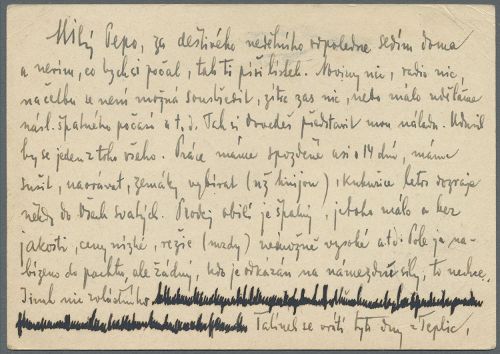 Milý Pepo, za deštivého nedělního odpoledne sedím doma
a nevím, co bych si počal, tak ti píši lístek. Noviny nic, radio nic,
na četbu se není možná soustředit, zítra zas nic, nebo málo uděláme
násl. špatného počasí a t. d. Tak si dovedeš představit mou náladu.
by se jeden z toho všeho. Práce máme spozdění asi o 14 dní, máme
sušit, naorávat, zemáky vybírat (už hnijou), kukuřice letos dozraje
někdy do Všech svatých. Prodej obilí je špatný, je toho málo a bez
jakosti, ceny nízké, režie (mzdy) nemožně vysoké atd. Pole je na-
bízeno do pachtu, ale žádný, kdo je odkázán na námezdné síly, to nechce.
Jinak nic zvláštního
Tatínek se vrátí tyto dny z Teplic,